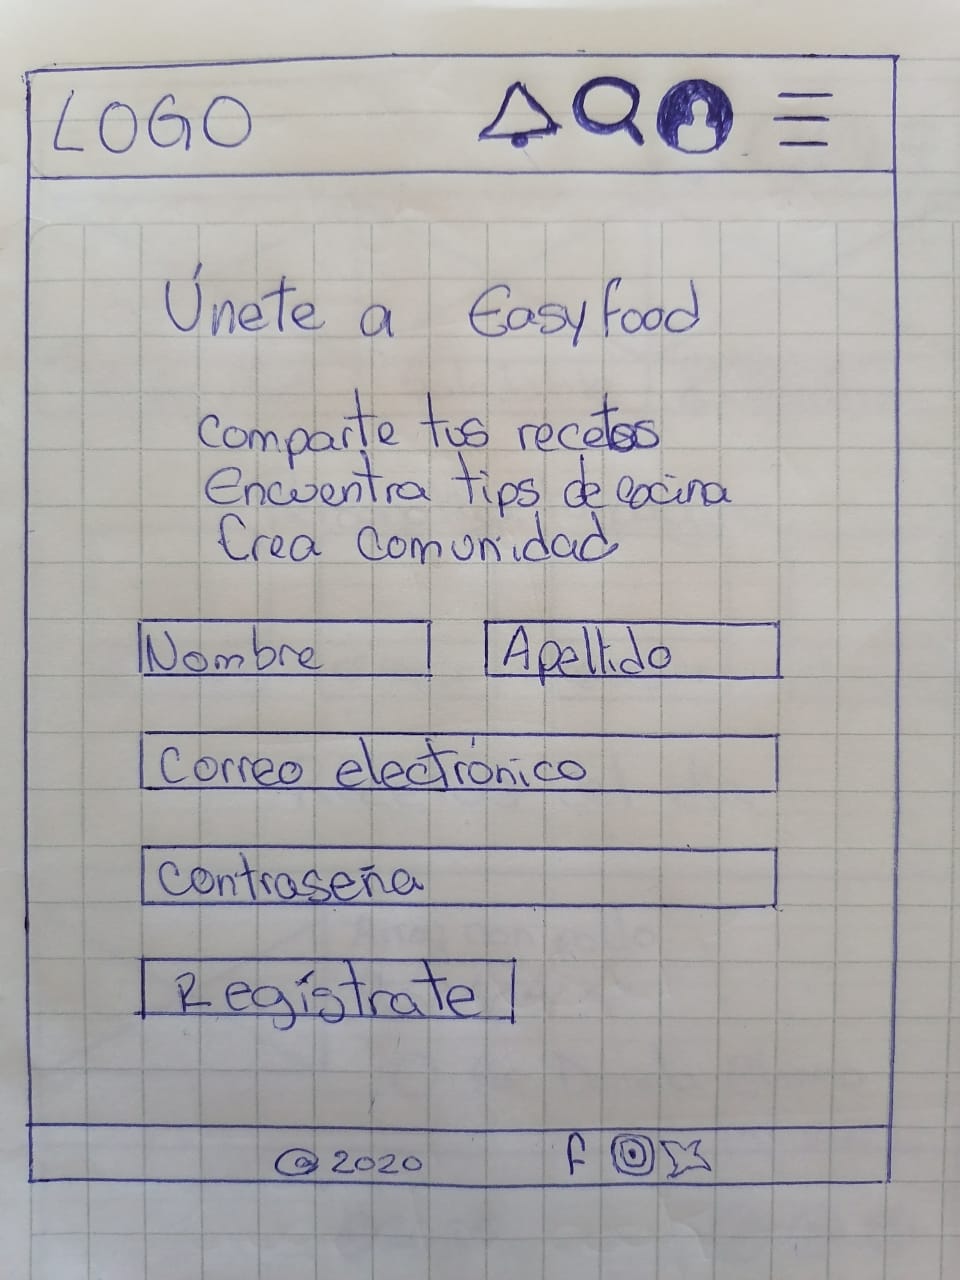 LOGO
Únete a Easyfood
Comparte tus recetas
Encuentra tips de cocina
Crea comunidad
Nombre Apellido
Correo electrónico
Contraseña
Regístrate
© 2020 f